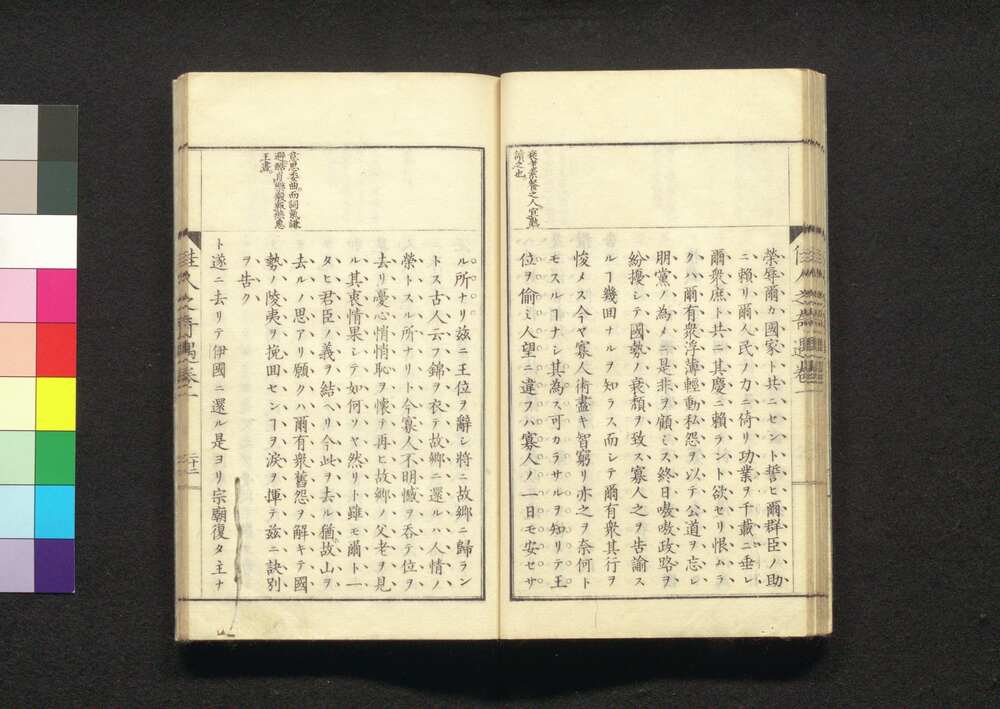 榮辱爾カ國家ト共ニセント誓ヒ爾群臣ノ助
ニ賴リ爾人民ノ力ニ倚リ功業ヲ千載ニ垂レ
爾衆庶ト共ニ其慶ニ賴ラント欲セリ恨ムラ
クハ爾有衆浮薄輕動私怨ヲ以テ公道ヲ忘レ
朋黨ノ為メニ是非ヲ顧ミス終日嗷嗷政路ヲ
紛擾シテ國勢ノ衰頽ヲ致ス寡人之ヲ告諭ス
ルヿ幾回ナルヲ知ラス而レテ爾有衆其行ヲ
悛メス今ヤ寡人術盡キ智窮リ亦之ヲ奈何ト
モスルヿナシ其為ス可カラサルヲ知リテ王
位ヲ偷ミ人望ニ違フハ寡人ノ一日モ安セサ
素餐之人宜熟
讀之也
ル所ナリ茲ニ王位ヲ辭シ將ニ故鄉ニ歸ラン
トス古人云フ錦ヲ衣テ故鄉ニ還ルハ人情ノ
榮トスル所ナリト今寡人不明慽ヲ呑テ位ヲ
去リ憂心悄悄恥ヲ懷テ再ヒ故鄉ノ父老ヲ見
ル其衷情果シテ如何ソヤ然リト雖モ爾ト一
タヒ君臣ノ義ヲ結ヘリ今此ヲ去ル猶故山ヲ
去ルノ思アリ願クハ爾有衆舊怨ヲ解キテ國
勢ノ陵夷ヲ挽回センヿヲ淚ヲ揮テ茲ニ訣別
ヲ告ク
ト遂ニ去リテ伊國ニ還ル是ヨリ宗廟復タ主ナ
意思委曲而詞氣謙
遜酷肖樂毅報燕惠
王書
佳人之奇遇卷二
二十二